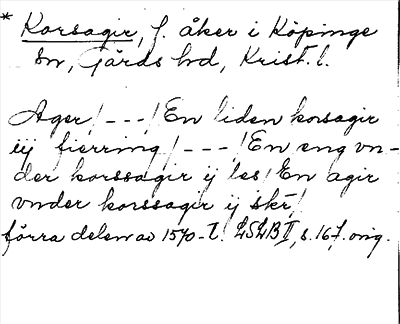 * Korsagir, f. åker i Köpinge
sn, Gärds hd, Krist. l.
Ager! --- ! En liden korsagir
iij fierring! --- ! En eng vn-
der korssagir ij les! En agir
vnder korssagir ij skr!
förra delen av 1570-t. LSLB II, s. 167. orig.